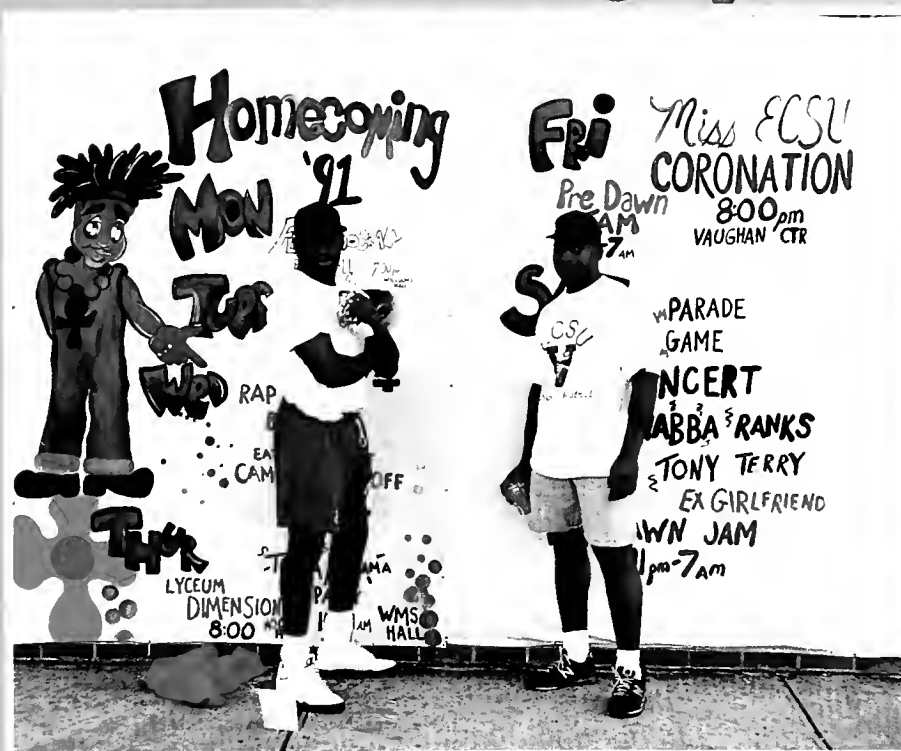 Homecoming
'91
MON
TUES
WED
RAP
CAM OFF
THUR
LYCEUM
DIMENSION
8:00
WMS
HALL
FRI
Pre Dawn
AM
-7AM
S
Miss ECSU
CORONATION
8:00pm
VAUGHAN CTR
PARADE
GAME
NCERT
ABBA RANKS
TONY TERRY
EX GIRLFRIEND
WN JAM
pm-7AM
CSU